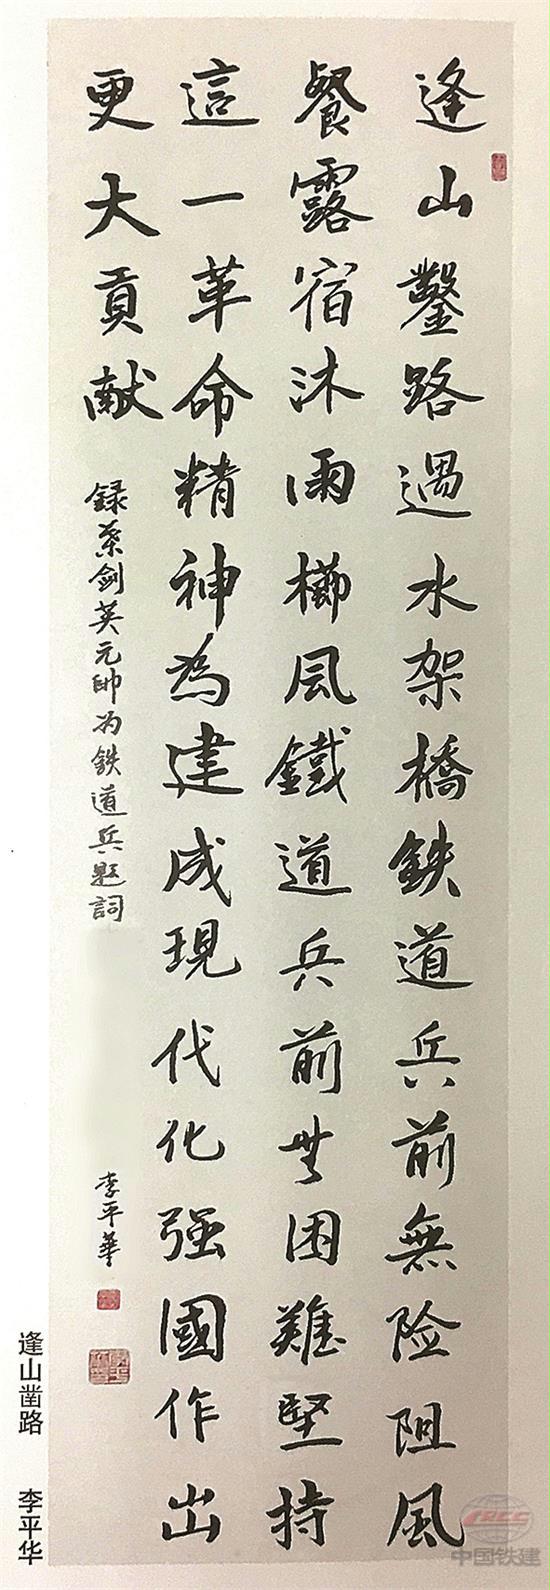 逢山鑿路遇水架橋鉄道兵前無险阻風
餐露宿沐雨櫛風鐵道兵前無困難堅持
這一革命精神為建成現代化强國作出
更大貢献
録葉劍英元帥为鉄道兵題詞
李平華
逢山凿路 李平华
CRCC
中国铁建